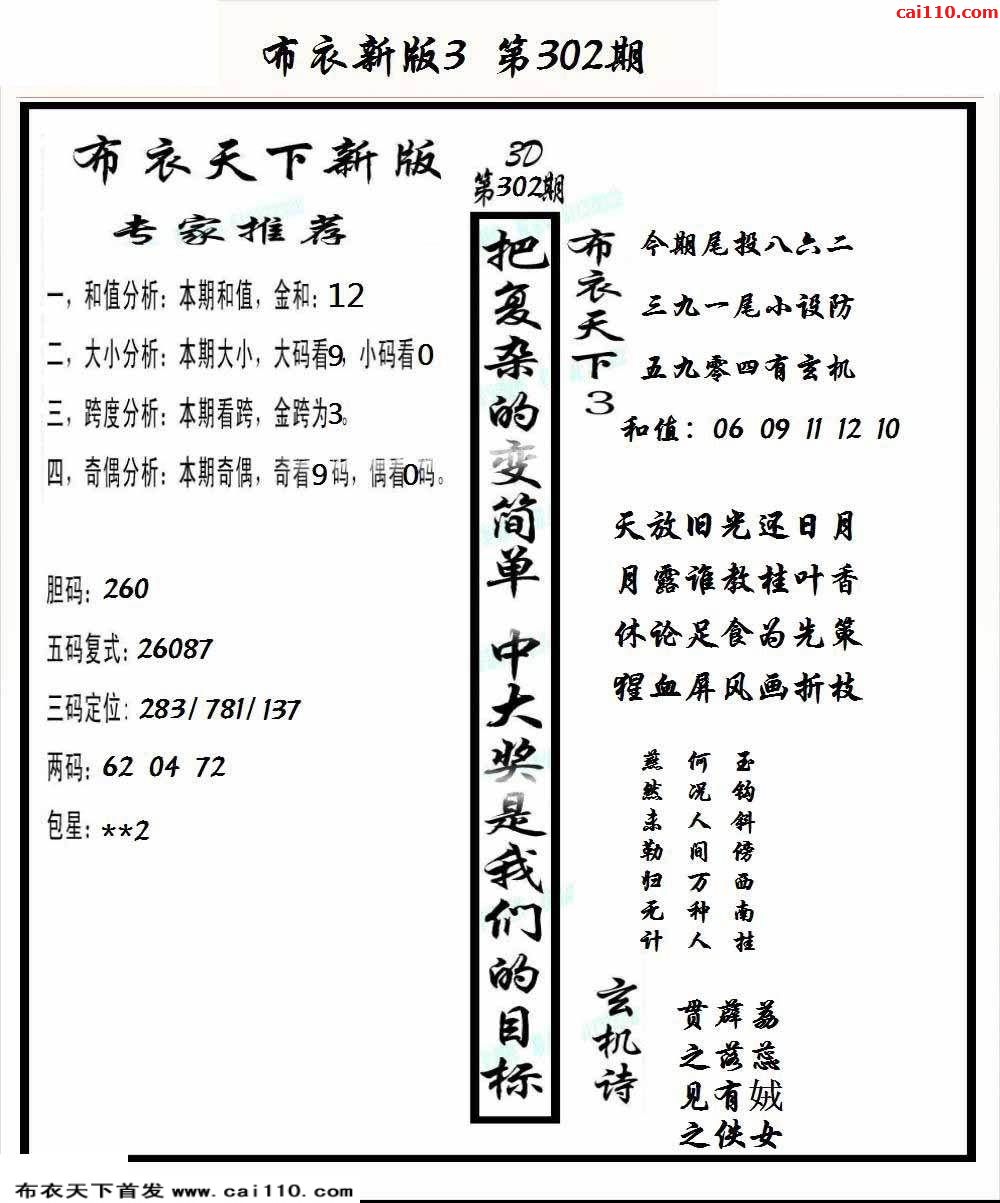 cai110.com
布衣新版3 第302期
布衣天下新版
专家推荐
一，和值分析：本期和值，金和：12
二，大小分析：本期大小，大码看9，小码看0
三，跨度分析：本期看跨，金跨为3。
四，奇偶分析：本期奇偶，奇看9码，偶看0码。
胆码：260
五码复式：26087
三码定位：283/781/137
两码：62 04 72
包星：**2
3D
第302期
把复杂的变简单 中大奖是我们的目标
布衣天下3
今期尾投八六二
三九一尾小设防
五九零四有玄机
和值：06 09 11 12 10
天放旧光还日月
月露谁教桂叶香
休论足食为先策
猩血屏风画折枝
玉钩斜傍西南挂
何况人间万种人
燕然未勒归无计
玄机诗
贯薜荔
之落蕊
见有娀
之佚女
布衣天下首发 www.cai110.com